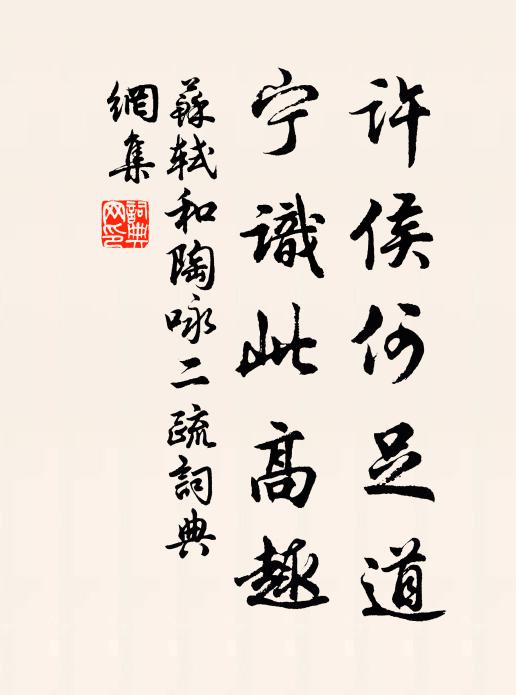 许侯何足道
宁識此高趣
蘇軾和陶咏二疏詞典
網集
詞典網印